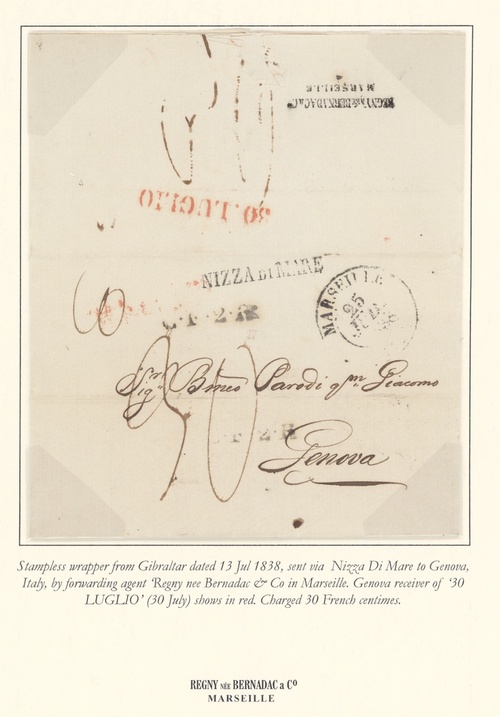 REGNY NÉE BERNADAC a Cº
MARSEILLE
30. LUGLIO
NIZZA DI MARE
MARSEILLE
25
Sigr. Bmeo Parodi qm. Giacomo
30
Genova
Stampless wrapper from Gibraltar dated 13 Jul 1838, sent via Nizza Di Mare to Genova,
Italy, by forwarding agent 'Regny nee Bernadac & Co in Marseille. Genova receiver of '30
LUGLIO' (30 July) shows in red. Charged 30 French centimes.
REGNY NÉE BERNADAC a Cº
MARSEILLE